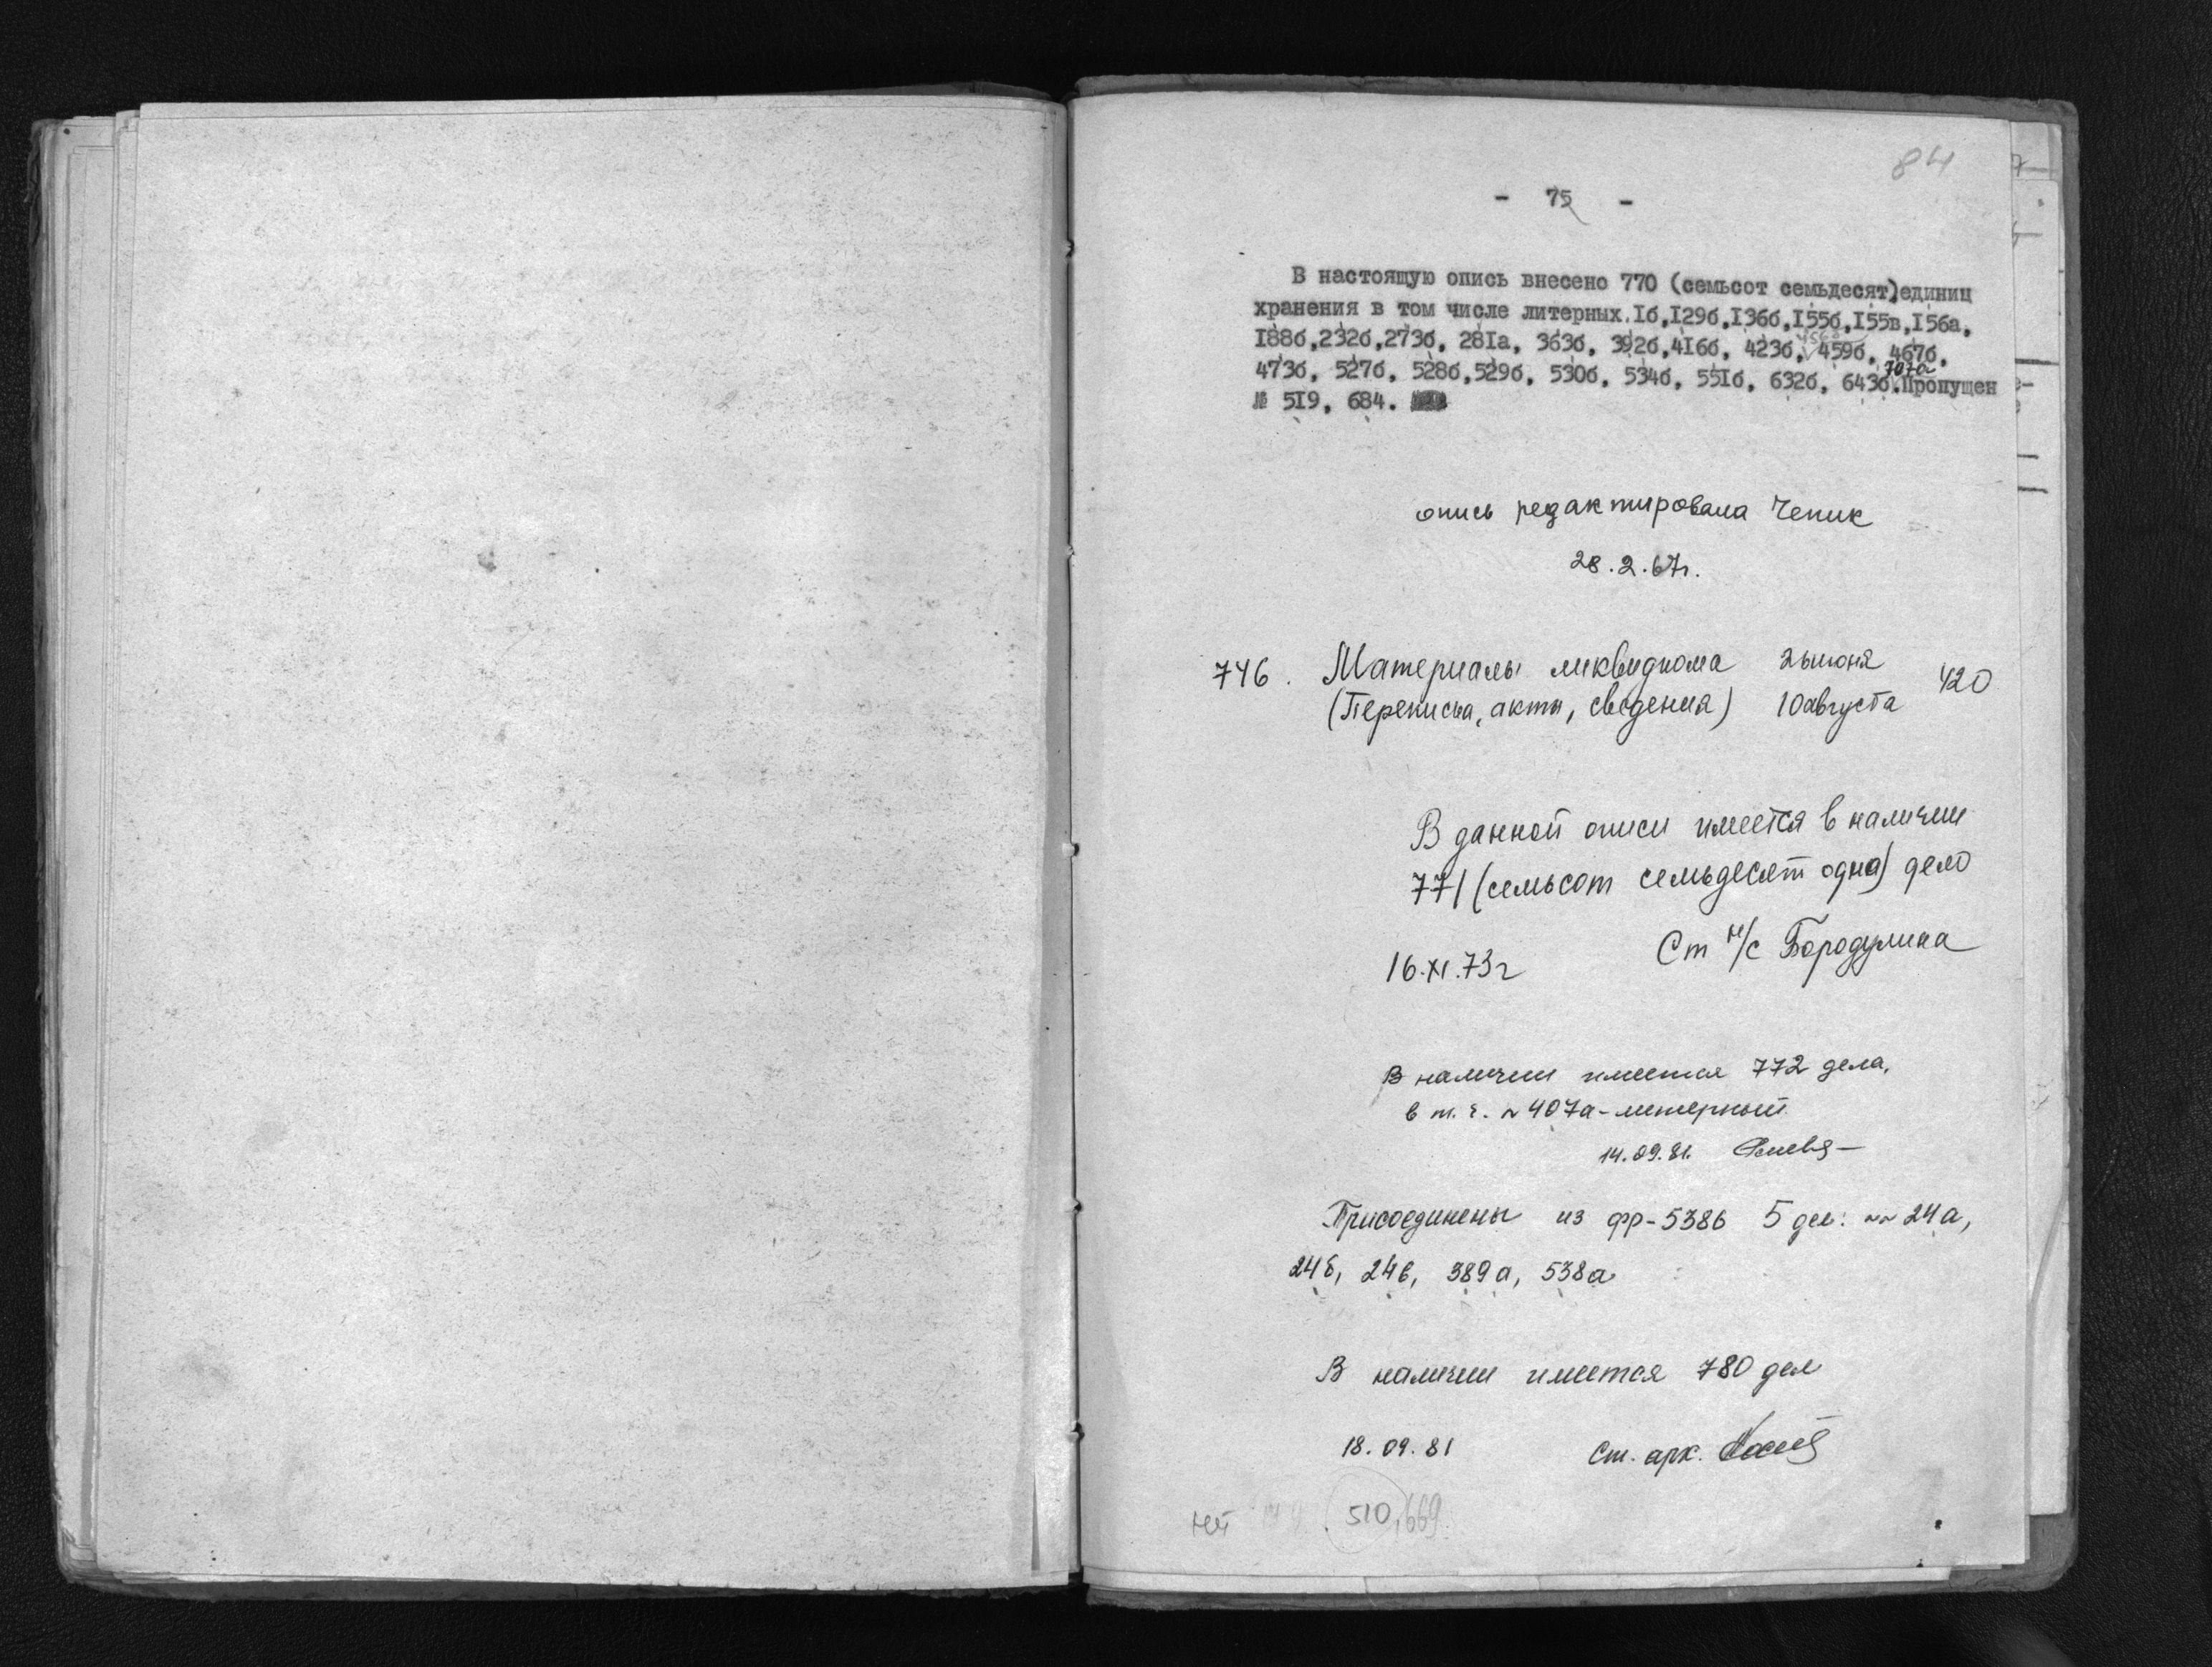 84
- 75 -
В настоящую опись внесено 770 (семьсот семьдесят) единиц
хранения в том числе литерных. 1б, 129б, 136б, 155б, 155в, 156а,
188б, 232б, 273б, 281а, 363б, 392б, 416б, 423б, 459б, 467б,
707а
473б, 527б, 528б, 529б, 530б, 534б, 551б, 632б, 643б. Пропущен
№ 519, 684.
опись редактировала Чепик
28.2.67г.
746. Материалы ликвидкома 2 июня 420
(Переписка, акты, сведения) 10 августа
В данной описи имеется в наличии
771 (семьсот семьдесят одно) дело
Ст н/с Бородулина
16.XI.73г
В наличии имеется 772 дела,
в т. ч. № 407а - литерный
14.09.81.
Присоединены из фр-5386 5 дел: №№ 24а,
24б, 24в, 389а, 538а
В наличии имеется 780 дел
18.09.81 Ст. арх.
нет 510, 669